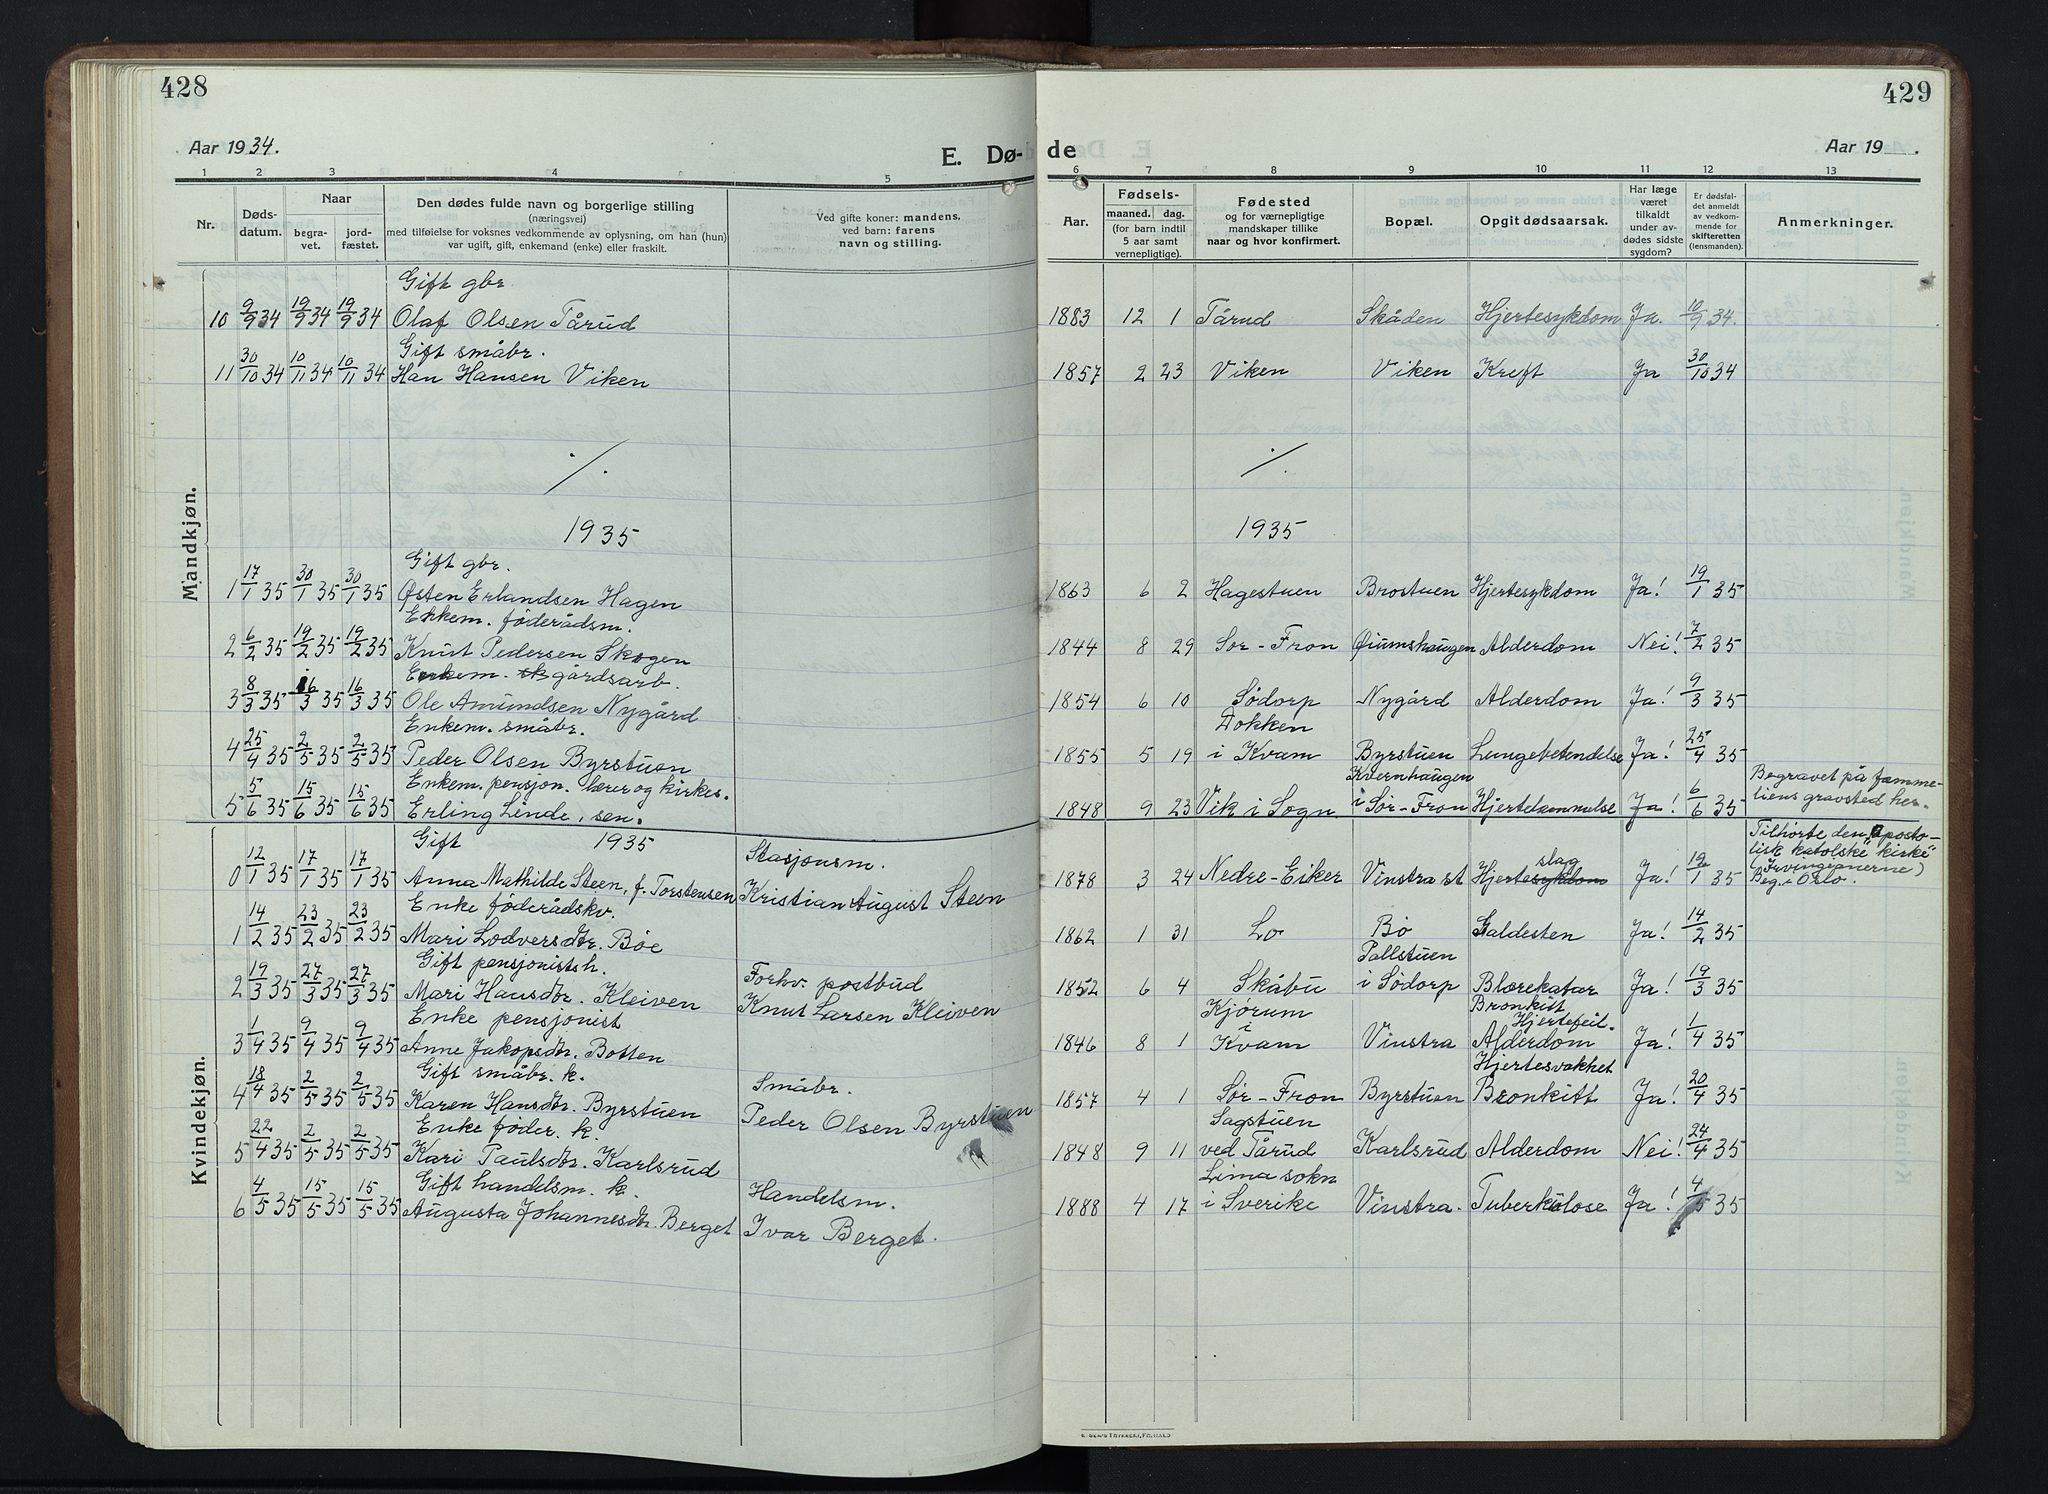 428
Aar 1934.
E. Dø-
1 2 3 4 5
Nr.
Døds-
datum.
Naar
begra-
vet.
jord-
fæstet.
Den dødes fulde navn og borgerlige stilling
(næringsvei)
med tilføielse for voksnes vedkommende av oplysning, om han (hun)
var ugift, gift, enkemand (enke) eller fraskilt.
Ved gifte koner: mandens,
ved barn: farens
navn og stilling.
Mandkjøn.
Gift gbr.
10 9/9 34 19/9 34 19/9 34 Olaf Olsen Tårud
Gift småbr.
11 30/10 34 10/11 34 10/11 34 Han Hansen Viken
./.
1935
Gift gbr.
1 17/1 35 30/1 35 30/1 35 Østen Erlandsen Hagen
Enkem. føderådsm.
2 6/2 35 19/2 35 19/2 35 Knut Pedersen Skogen
Enkem. gårdsarb.
3 8/3 35 16/3 35 16/3 35 Ole Amundsen Nygård
Enkem. småbr.
4 25/4 35 2/5 35 2/5 35 Peder Olsen Byrstuen
Enkem. pensjon. lærer og kirkes.
5 5/6 35 15/6 35 15/6 35 Erling Linde, sen.
Kvindekjøn.
Gift 1935 Stasjonsm.
0 12/1 35 17/1 35 17/1 35 Anna Mathilde Steen, f. Torstensen Kristian August Steen
Enke føderådskv.
1 14/2 35 23/2 35 23/2 35 Mari Lodversdtr. Bøe
Gift pensjonistsh. Forhv. postbud
2 19/3 35 27/3 35 27/3 35 Mari Hansdtr. Kleiven Knut Larsen Kleiven
Enke pensjonist
3 1/4 35 9/4 35 9/4 35 Anne Jakopsdtr. Botten
Gift småbr. k. Småbr.
4 18/4 35 2/5 35 2/5 35 Karen Hansdtr. Byrstuen Peder Olsen Byrstuen
Enke føder. k.
5 22/4 35 2/5 35 2/5 35 Kari Paulsdtr. Karlsrud
Gift handelsm. k. Handelsm.
6 4/5 35 15/5 35 15/5 35 Augusta Johannesdtr. Berget Ivar Berget.
429
de
Aar 19 .
6 7 8 9 10 11 12 13
Aar.
Fødsels-
maaned. dag.
(for barn indtil
5 aar samt
vernepligtige).
Fødested
og for værnepligtige
mandskaper tillike
naar og hvor konfirmert.
Bopæl.
Opgit dødsaarsak.
Har læge
været
tilkaldt
under av-
dødes sidste
sygdom?
Er dødsfal-
det anmeldt
av vedkom-
mende for
skifteretten
(lensmanden).
Anmerkninger.
1883 12 1 Tårud Skåden Hjertesykdom Ja. 10/9 34.
1857 2 23 Viken Viken Kreft Ja 30/10 34
./.
1935
1863 6 2 Hagestuen Brostuen Hjertesykdom Ja! 19/1 35
1844 8 29 Sør-Fron Øiumshaugen Alderdom Nei! 7/2 35
1854 6 10 Sødorp Nygård Alderdom Ja! 9/3 35
Dokken
1855 5 19 i Kvam Byrstuen Lungebetendelse Ja! 25/4 35
Kvernhaugen Begravet på famme-
1848 9 23 Vik i Sogn i Sør-Fron Hjertelammelse Ja! 6/6 35 liens gravsted her.
Tilhørte den "aposto-
slag lisk katolske" kirke
1878 3 24 Nedre-Eiker Vinstra st Hjertesykdom Ja! 12/1 35 (Irvingianerne)
Beg. i Oslo.
1862 1 31 Lo Bø Galdesten Ja! 14/2 35
Pallstuen
1852 6 4 Skåbu i Sødorp Blærekatar Ja! 19/3 35
Kjørum Bronkitt
i Hjertefeil.
1846 8 1 Kvam Vinstra Alderdom Ja! 1/4 35
Hjertesvakhet
1857 4 1 Sør-Fron Byrstuen Bronkitt Ja! 20/4 35
Sagstuen
1848 9 11 ved Tårud Karlsrud Alderdom Nei! 24/4 35
Lima sokn
1888 4 17 i Sverike Vinstra. Tuberkulose Ja! 4/5 35